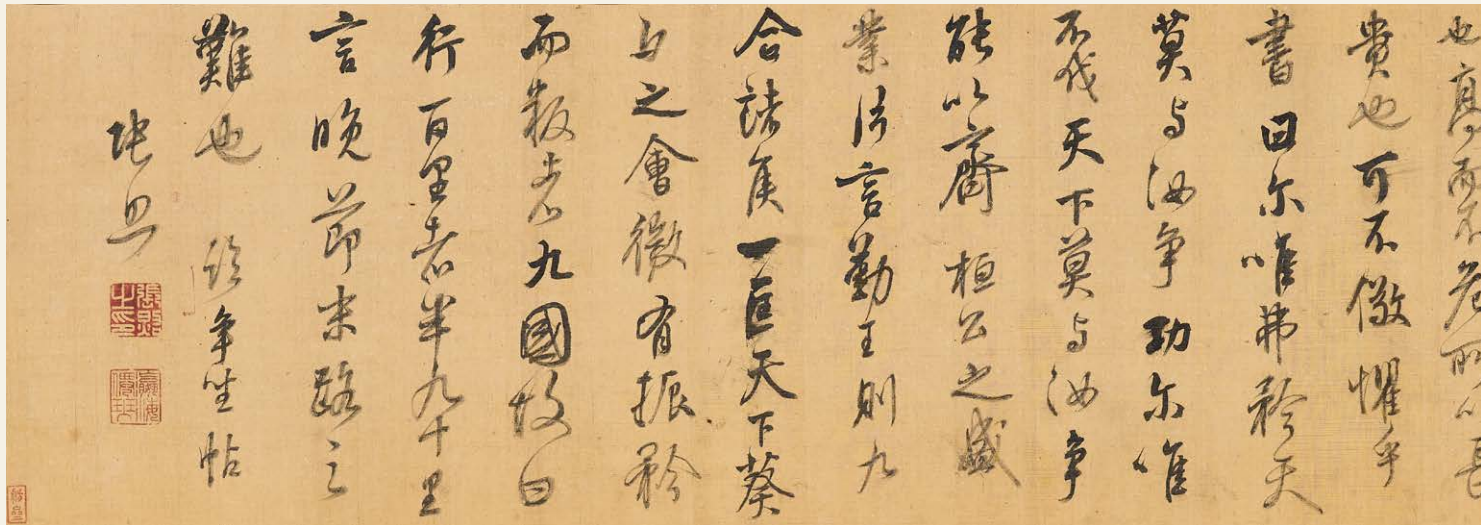 也高而不危所以長
貴也可不儆懼乎
書曰尔唯弗矜天
莫与汝争功尔唯
不伐天下莫与汝争
能以齊桓公之盛
業片言勤王則九
合諸侯一匡天下葵
丘之會微有振矜
而叛者九國故曰
行百里者半九十里
言晚節末路之
難也 臨争坐帖
張照
張照之印